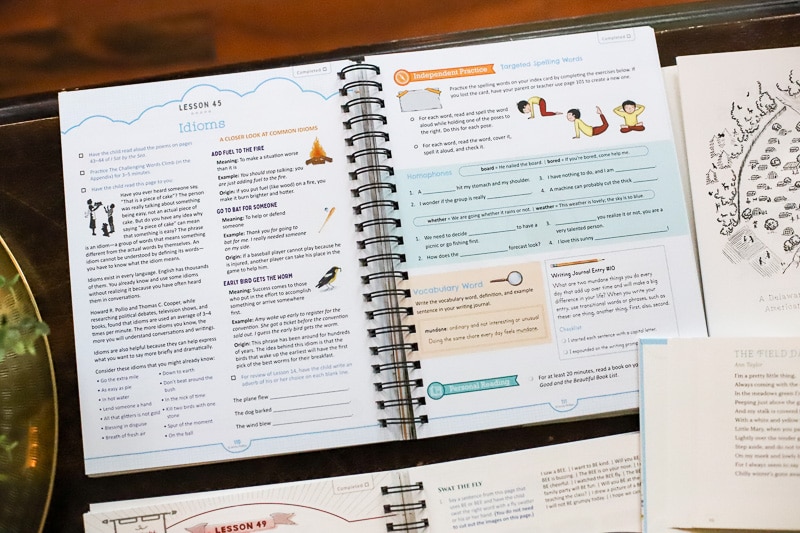 Completed
LESSON 45
Idioms
Have the child read about the poems on pages
43–44 of I Sat by the Sea.
Practice The Challenging Words Climb (in the
Appendix) for 3–5 minutes.
Have the child read this page to you:
Have you ever heard someone say,
"That is a piece of cake"? The person
was really talking about something
being easy, not an actual piece of
cake. But do you have any idea why
saying "a piece of cake" can mean
that something is easy? The phrase
is an idiom—a group of words that means something
different from the actual words by themselves. An
idiom cannot be understood by defining its words—
you have to know what the idiom means.
Idioms exist in every language. English has thousands
of them. You already know and use some idioms
without realizing it because you have often heard
them in conversations.
Howard R. Pollio and Thomas C. Cooper, while
researching political debates, television shows, and
books, found that idioms are used an average of 3–4
times per minute. The more idioms you know, the
more you will understand conversations and writings.
Idioms are also helpful because they can help express
what you want to say more briefly and dramatically.
Consider these idioms that you might already know:
• Go the extra mile
• As easy as pie
• In hot water
• Lend someone a hand
• All that glitters is not gold
• Blessing in disguise
• Breath of fresh air
• Down to earth
• Don't beat around the
bush
• In the nick of time
• Kill two birds with one
stone
• Spur of the moment
• On the ball
A CLOSER LOOK AT COMMON IDIOMS
ADD FUEL TO THE FIRE
Meaning: To make a situation worse
than it is
Example: You should stop talking; you
are just adding fuel to the fire.
Origin: If you put fuel (like wood) on a fire, you
make it burn brighter and hotter.
GO TO BAT FOR SOMEONE
Meaning: To help or defend
someone
Example: Thank you for going to
bat for me. I really needed someone
on my side.
Origin: If a baseball player cannot play because he
is injured, another player can take his place in the
game to help him.
EARLY BIRD GETS THE WORM
Meaning: Success comes to those
who put in the effort to accomplish
something or arrive somewhere
first.
Example: Amy woke up early to register for the
convention. She got a ticket before the convention
sold out. I guess the early bird gets the worm.
Origin: This phrase has been around for hundreds
of years. The idea behind this idiom is that the
birds that wake up the earliest will have the first
pick of the best worms for their breakfast.
For review of Lesson 14, have the child write an
adverb of his or her choice on each blank line.
The plane flew
The dog barked
The wind blew
Completed
Independent Practice
Targeted Spelling Words
Practice the spelling words on your index card by completing the exercises below. If
you lost the card, have your parent or teacher use page 101 to create a new one.
For each word, read and spell the word
aloud while holding one of the poses to
the right. Do this for each pose.
For each word, read the word, cover it,
spell it aloud, and check it.
Homophones
board = He nailed the board. | bored = If you're bored, come help me.
1. A hit my stomach and my shoulder.
2. I wonder if the group is really
3. I have nothing to do, and I am
4. A machine can probably cut the thick
whether = We are going whether it rains or not. | weather = This weather is lovely; the sky is blue.
1. We need to decide to have a
picnic or go fishing first.
2. How does the forecast look?
3. you realize it or not, you are a
very talented person.
4. I love this sunny
Vocabulary Word
Write the vocabulary word, definition, and example
sentence in your writing journal.
mundane: ordinary and not interesting or unusual
Doing the same chore every day feels mundane.
Writing Journal Entry #10
What are two mundane things you do every
day that add up over time and will make a big
difference in your life? When you write your
entry, use transitional words or phrases, such as
these: one thing, another thing. First, also, second.
Checklist
I started each sentence with a capital letter.
I expanded on the writing prompt
Personal Reading
For at least 20 minutes, read a book on your
Good and the Beautiful Book List.
Completed
LESSON 49
SWAT THE FLY
THE FIELD DAISY
Ann Taylor
I'm a pretty little thing,
Always coming with the
In the meadows green I'm
Peeping just above the
And my stalk is covered
With a white and yellow
Little Mary, when you
Lightly over the tender